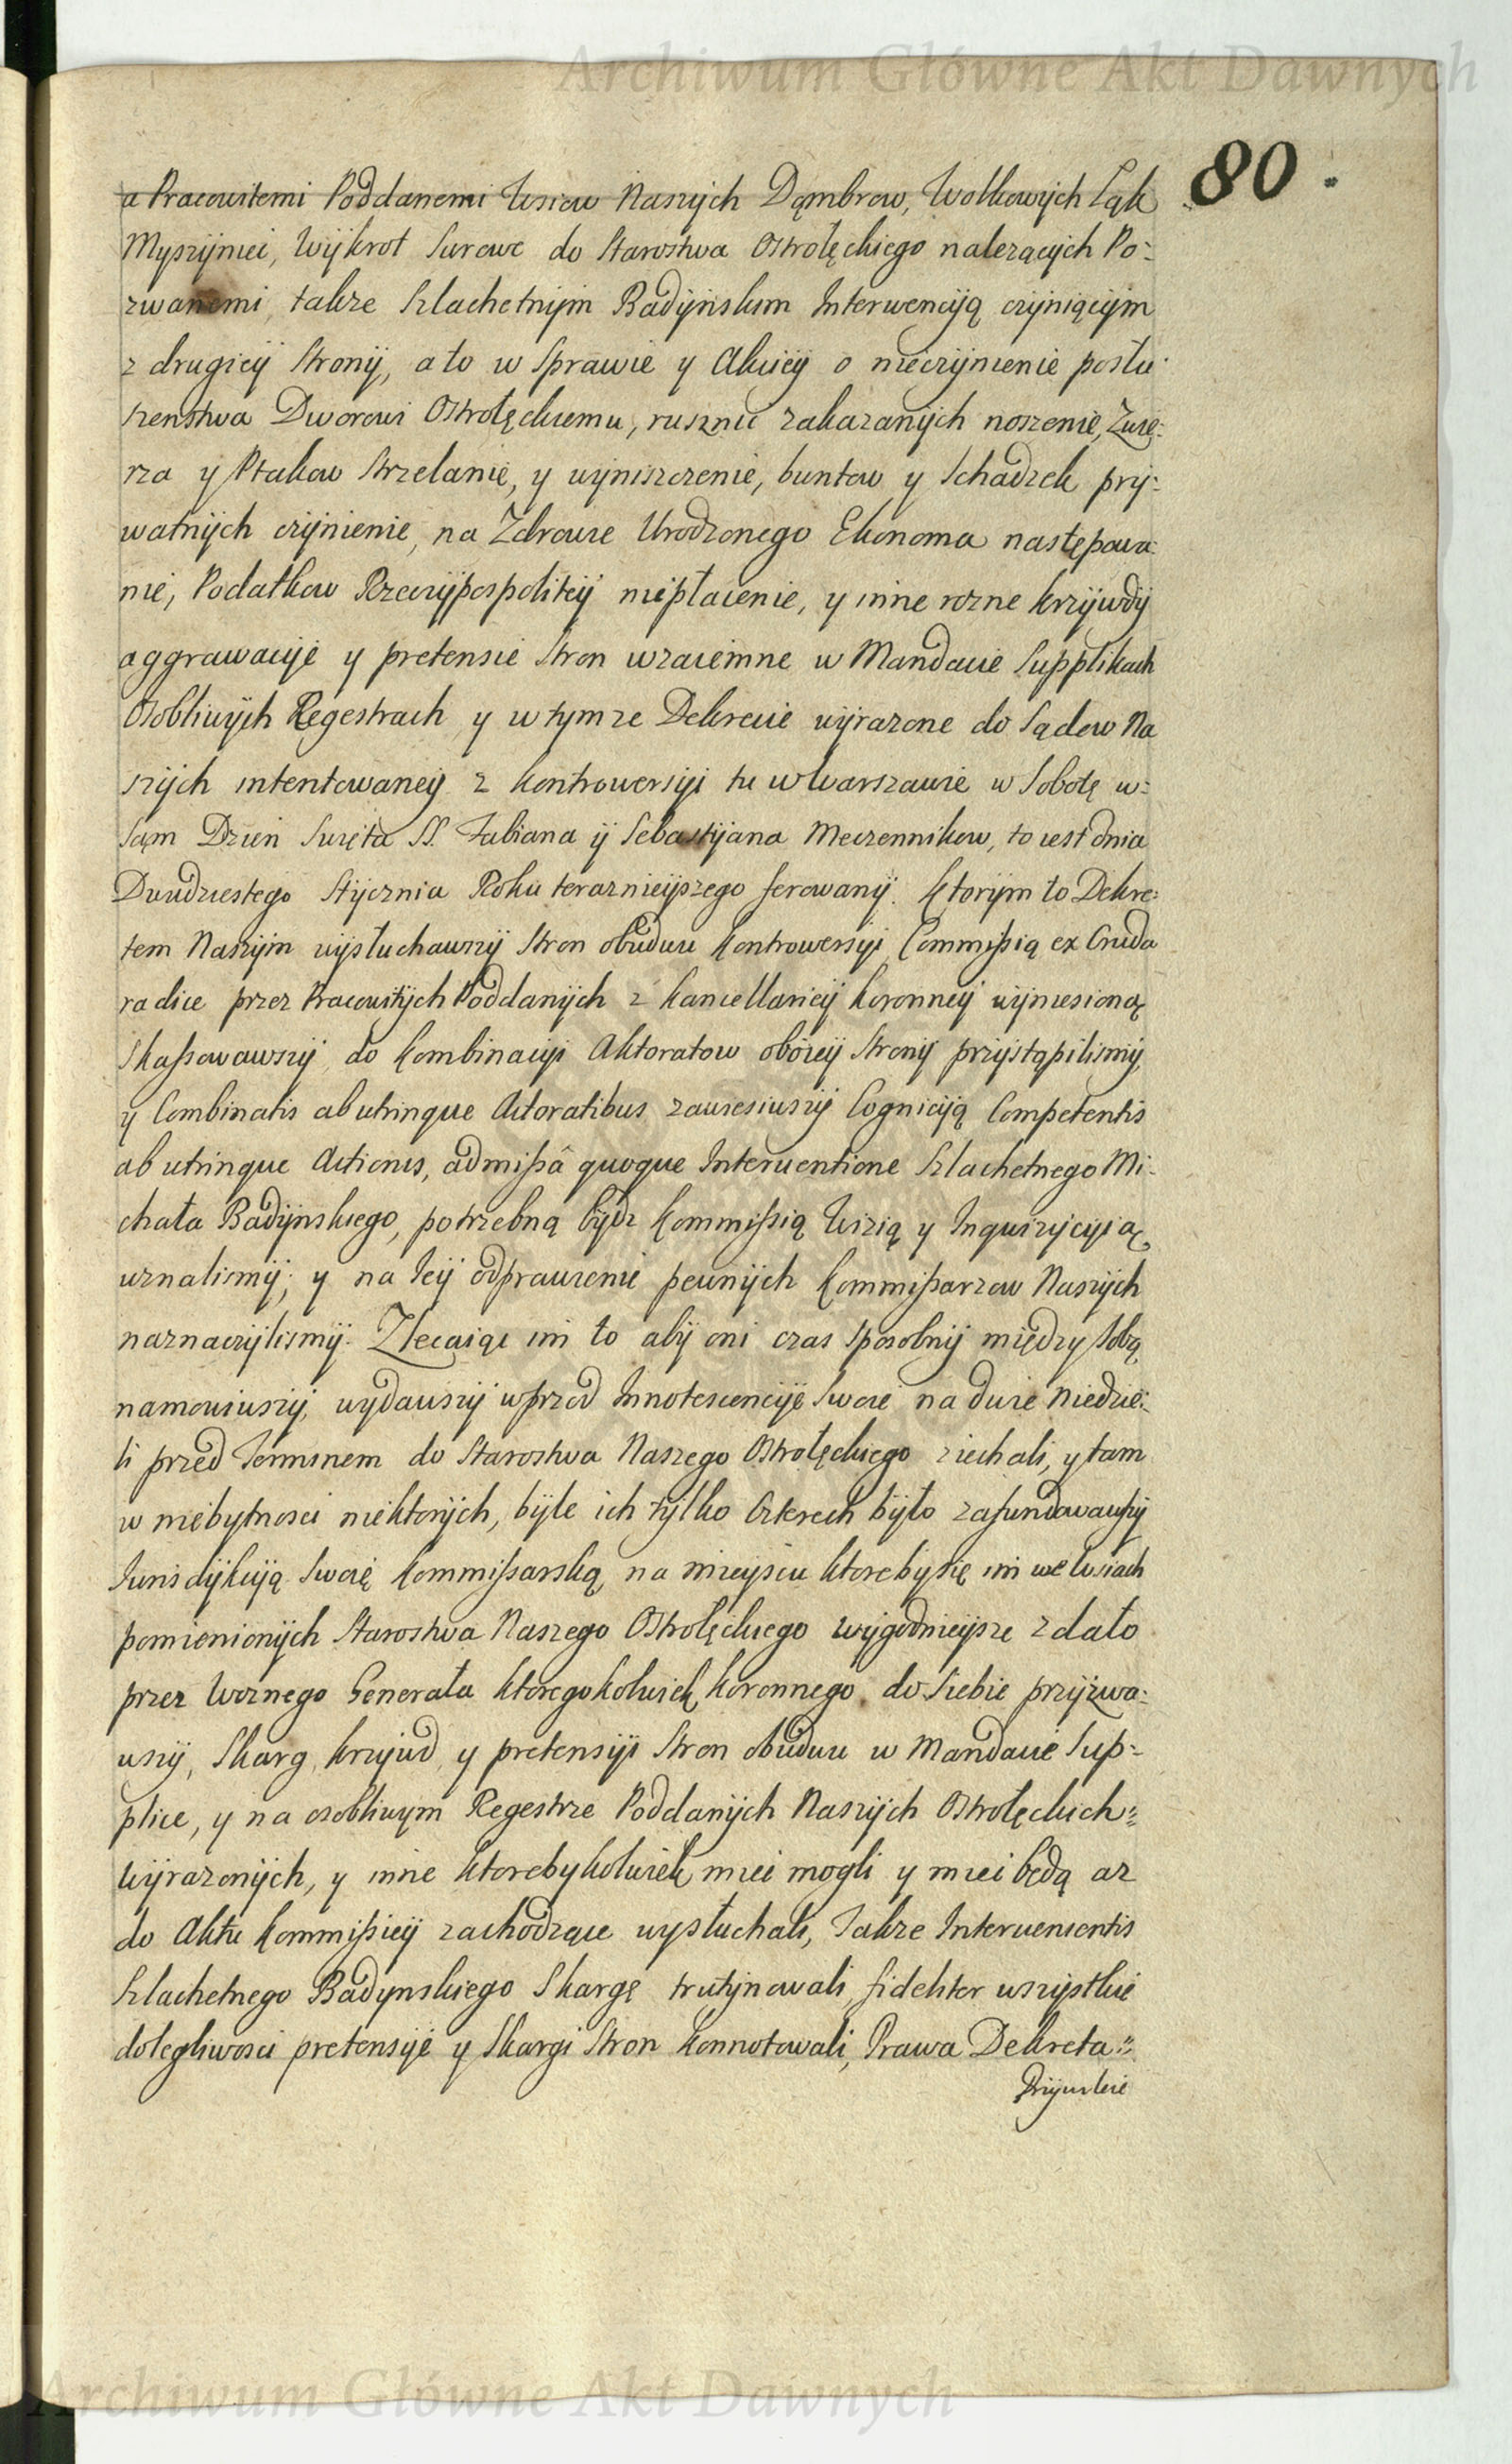 Archiwum Główne Akt Dawnych
80.
a Pracowitemi Poddanemi Wsiow Naszÿch Dąmbrow, Wolkowÿch Ląk
Mÿszÿniei, Wÿkrot Surowe do Starostwa Ostrołęckiego nalezącÿch Po:
zwanemi, takze Szlachetnÿm Badÿnskim Interwencÿą czÿniącÿm
z drugieÿ Stronÿ, a to w Sprawie y Akcieÿ o nieczÿnienie posłu:
szenstwa Dworowi Ostrołęckiemu, rusznic zakazanÿch noszenie, Zwię:
rza y Ptakow Strzelanie, y wÿniszczenie, buntow y Schadzek prÿ:
watnÿch czÿnienie, na Zdrowie Urodzonego Ekonoma następowa:
nie, Podatkow Rzeczÿpospoliteÿ niepłacenie, y inne rozne krzÿwdÿ
aggrawacÿe y pretensie Stron wzaiemne w Mandacie Supplikach
Osobliwÿch Regestrach y w tymze Dekrecie wÿrazone do Sądow Na
szÿch intentowaneÿ z kontrowersÿi tu w Warszawie w Sobotę w:
Sam Dzien Swięta SS. Fabiana ÿ Sebastÿana Meczennikow, to iest dnia
Dwudziestego Stÿcznia Roku teraznieÿszego ferowanÿ. Ktorÿm to Dekre:
tem Naszÿm wÿsłuchawszÿ Stron obudwu kontrowersÿi Commißią ex Cruda
radice przez Pracowitÿch Poddanÿch z Kancellarieÿ Koronneÿ wÿniesioną
Skaßowawszÿ, do Kombinacÿi Aktoratow oboieÿ Stronÿ przÿstąpilismÿ,
y Combinatis ab utrinque Actoratibus zawiesiwszÿ Cognicÿą Competentis
ab utrinque Actionis, admißâ quoque Interventione Szlachetnego Mi:
chała Badÿnskiego, potrzebną bÿdz Kommißią Wizią y Inquizÿcÿią
uznalismÿ; y na Ieÿ odprawienie pewnÿch Kommißarzow Naszÿch
naznaczÿlismÿ. Zlecaiąc im to abÿ oni czas sposobnÿ między sobą
namowiwszÿ, wydawszÿ wprzod Innotescencÿe Swoie na dwie Niedzie:
li przed Terminem do Starostwa Naszego Ostrołęckiego ziechali, y tam
w niebytnosci niektorÿch, bÿle ich tÿlko Czterech bÿło zafundowawszÿ
Iurisdÿkcÿą Swoię Kommißarską, na mieÿscu ktoreby się im we Wsiach
pomienionÿch Starostwa Naszego Ostrołęckiego wÿgodnieÿsze zdało
przez Woznego Generała ktoregokolwiek Koronnego do Siebie przÿzwa:
wszÿ, Skarg, krzÿwd, y pretensÿi Stron obudwu w Mandacie Sup:
plice, y na osobliwym Regestrze Poddanÿch Naszÿch Ostrołęckich:
wÿrazonÿch, y inne ktorebykolwiek miei mogli y miei bedą az
do Aktu Kommißieÿ zachodzące wysłuchali, Takze Intervenientis
Szlachetnego Badynskiego Skargę trutÿnowali, fideliter wszÿstkie
dolegliwosci pretensÿe y Skargi Stron konnotowali, Prawa Dekreta:
Przÿwileie
Archiwum Główne Akt Dawnych